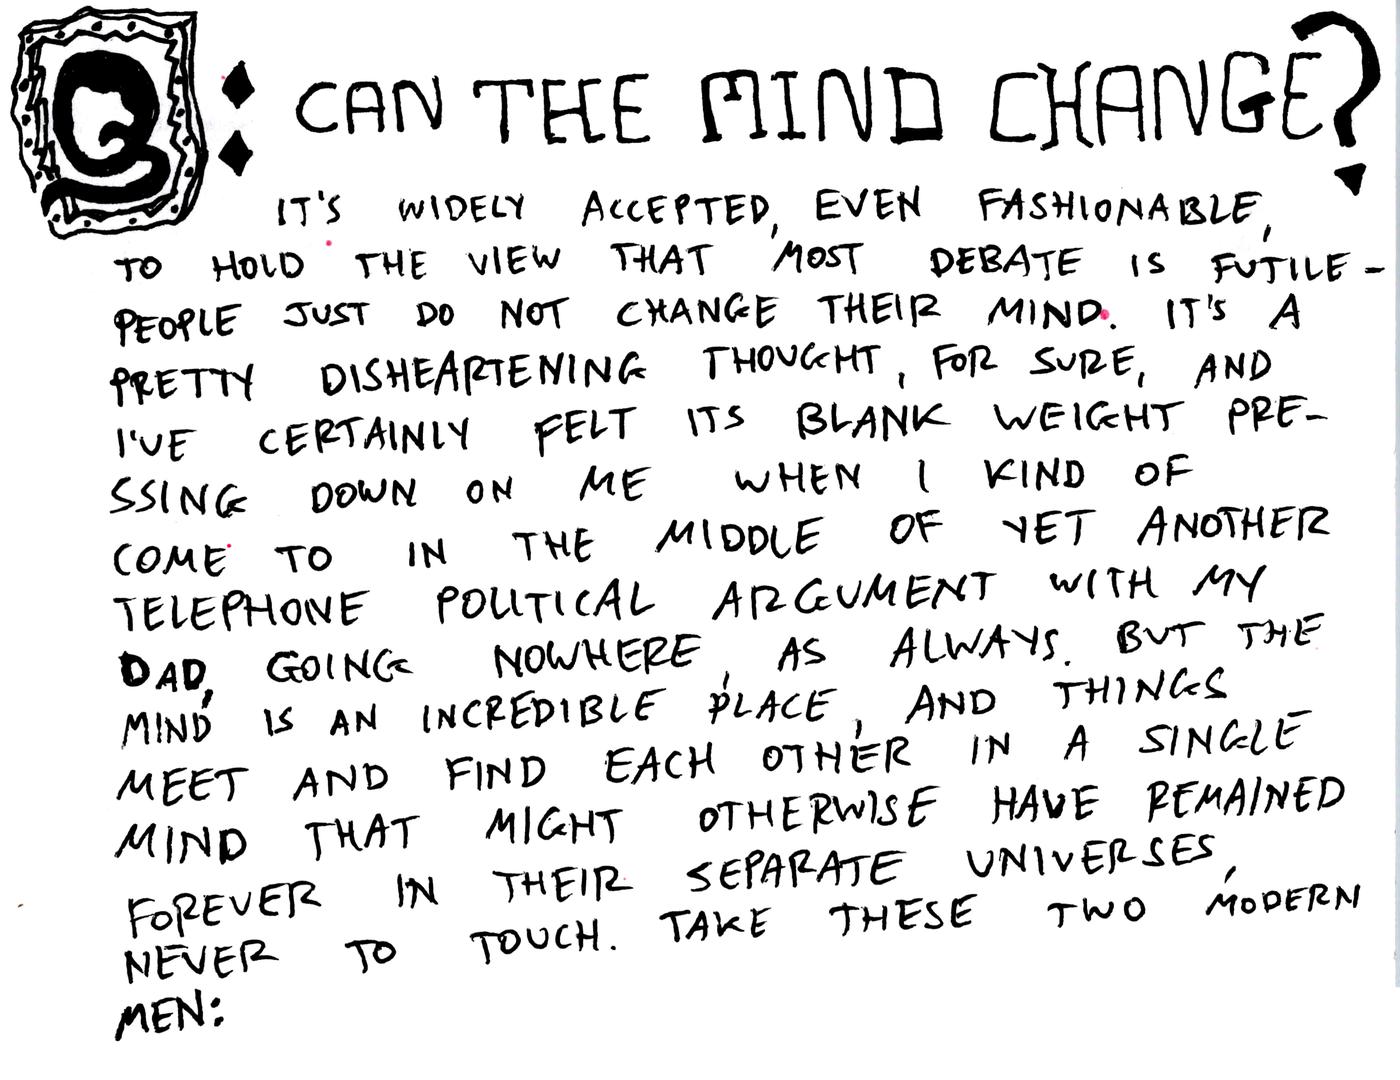 Q: CAN THE MIND CHANGE?
IT'S WIDELY ACCEPTED, EVEN FASHIONABLE,
TO HOLD THE VIEW THAT MOST DEBATE IS FUTILE -
PEOPLE JUST DO NOT CHANGE THEIR MIND. IT'S A
PRETTY DISHEARTENING THOUGHT, FOR SURE, AND
I'VE CERTAINLY FELT ITS BLANK WEIGHT PRE-
SSING DOWN ON ME WHEN I KIND OF
COME TO IN THE MIDDLE OF YET ANOTHER
TELEPHONE POLITICAL ARGUMENT WITH MY
DAD, GOING NOWHERE, AS ALWAYS. BUT THE
MIND IS AN INCREDIBLE PLACE, AND THINGS
MEET AND FIND EACH OTHER IN A SINGLE
MIND THAT MIGHT OTHERWISE HAVE REMAINED
FOREVER IN THEIR SEPARATE UNIVERSES,
NEVER TO TOUCH. TAKE THESE TWO MODERN
MEN: